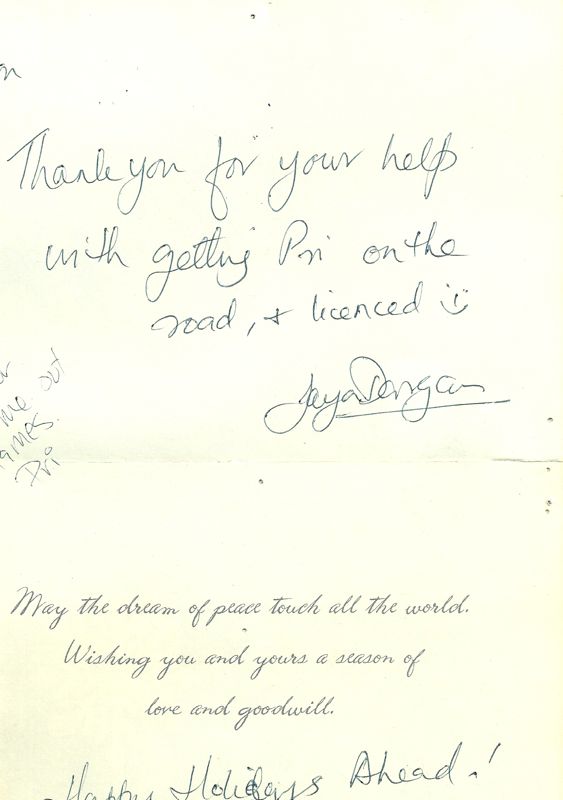 Thank you for your help
with getting Pri on the
road, + licenced
me out
Pri
May the dream of peace touch all the world.
Wishing you and yours a season of
love and goodwill.
Happy Holidays Ahead!